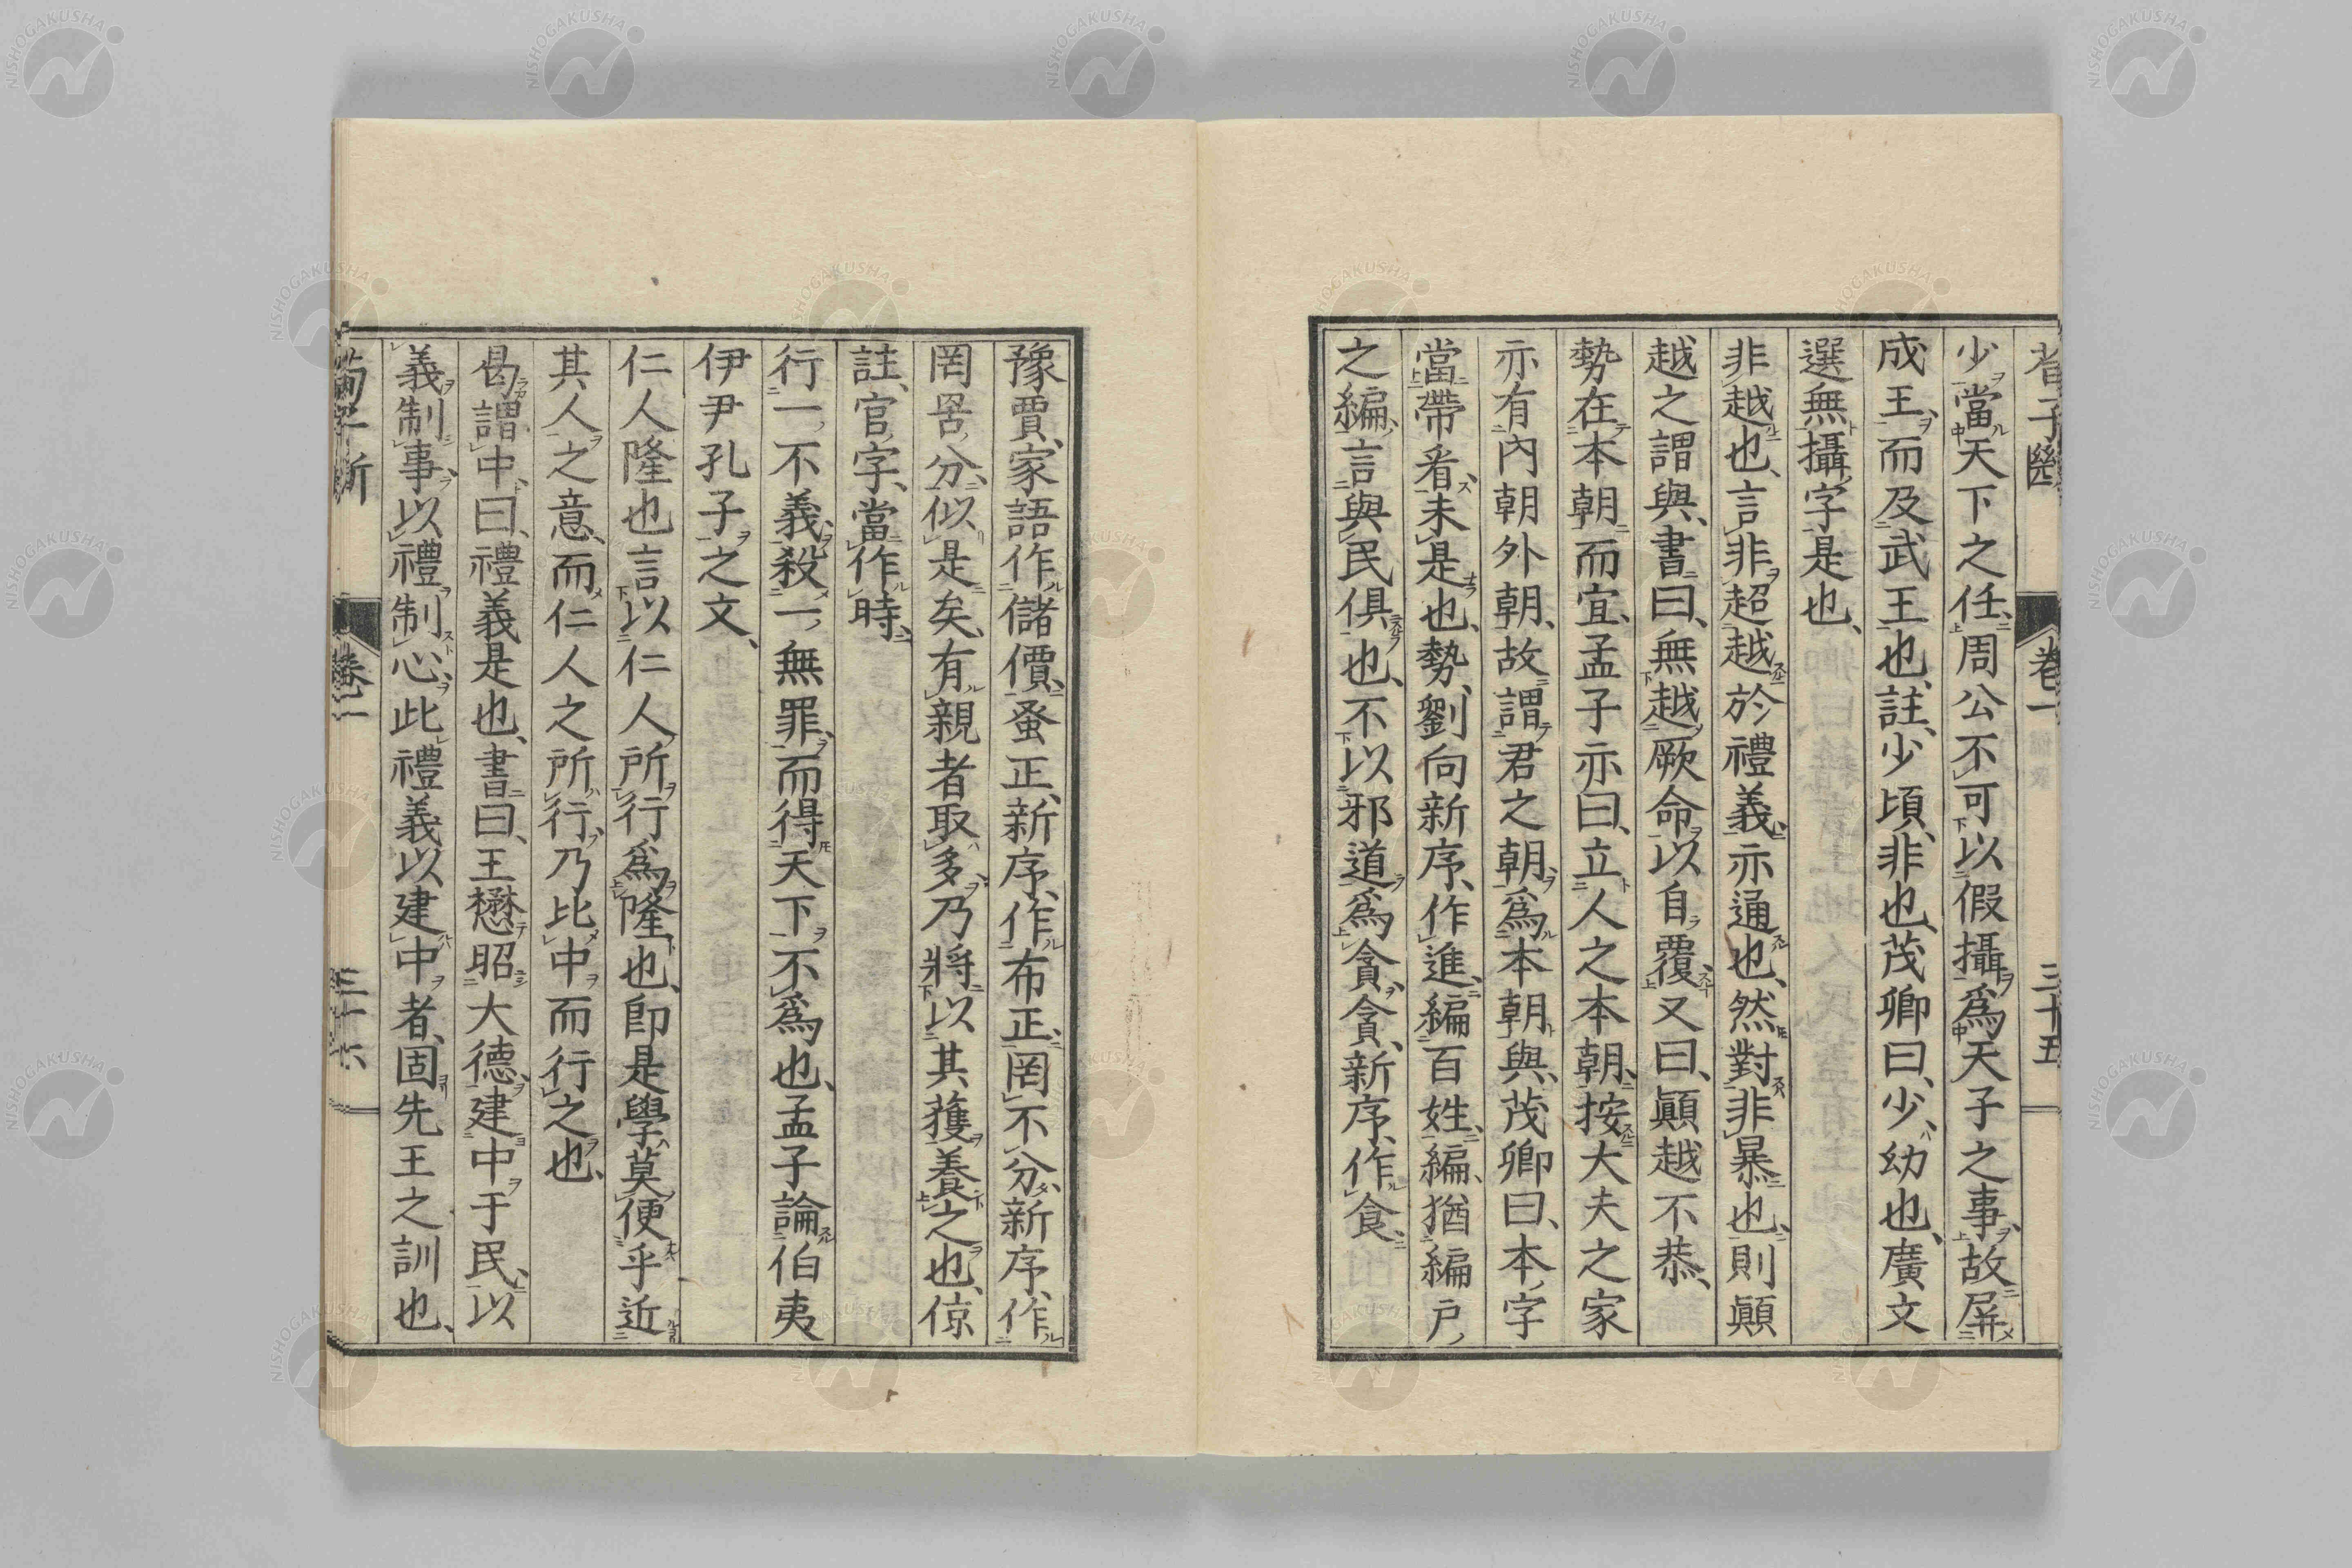 少當天下之任、周公不可以假攝爲天子之事、故屏
成王、而及武王也、註、少頃、非也、茂卿曰、少、幼也、廣文
選無攝字是也、
非越也、言非超越於禮義亦通也、然對非暴也、則顚
越之謂與、書曰、無越厥命以自覆、又曰、顚越不恭、
勢在本朝而宜、孟子亦曰、立人之本朝、按大夫之家
亦有內朝外朝、故謂君之朝爲本朝、與、茂卿曰、本、字
當帶看、未是也、勢、劉向新序、作進、編百姓、編、猶編戸
之編、言與民俱也、不以邪道爲貪、貪、新序、作食、
豫賈、家語作儲價、蚤正、新序、作布正、罔不分、新序、作
罔罟分、似是矣、有親者取多、乃將以其獲養之也、倞
註、官字、當作時、
行一不義、殺一無罪、而得天下、不爲也、孟子論伯夷
伊尹孔子之文、
仁人隆也言以仁人所行爲隆也、卽是學莫便乎近
其人之意、而仁人之所行、乃比中而行之也、
曷謂中曰、禮義是也、書曰、王懋昭大德、建中于民、以
義制事、以禮制心、此禮義以建中者、固先王之訓也、
荀子斷
卷一
三十五
三十六
NISHOGAKUSHA